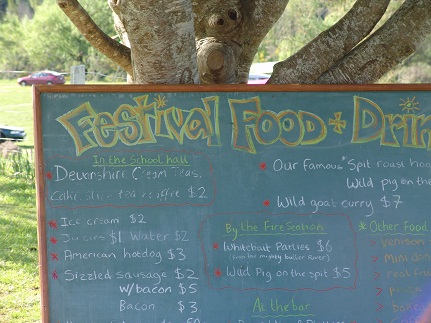 Festival Food & Drin
In the school hall
Devonshire Cream Teas.
Cake, slice, tea, coffee $2
Ice cream $2
Juices $1 Water $2
American hotdog $3
Sizzled sausage $2
w/bacon $5
Bacon $3
Our famous Spit roast
Wild pig on the
Wild goat curry $7
By the Fire Sention
Whitebait Patties $6
Wild Pig on the spit $5
At the bar
Other Food
venison
mini don
real frui